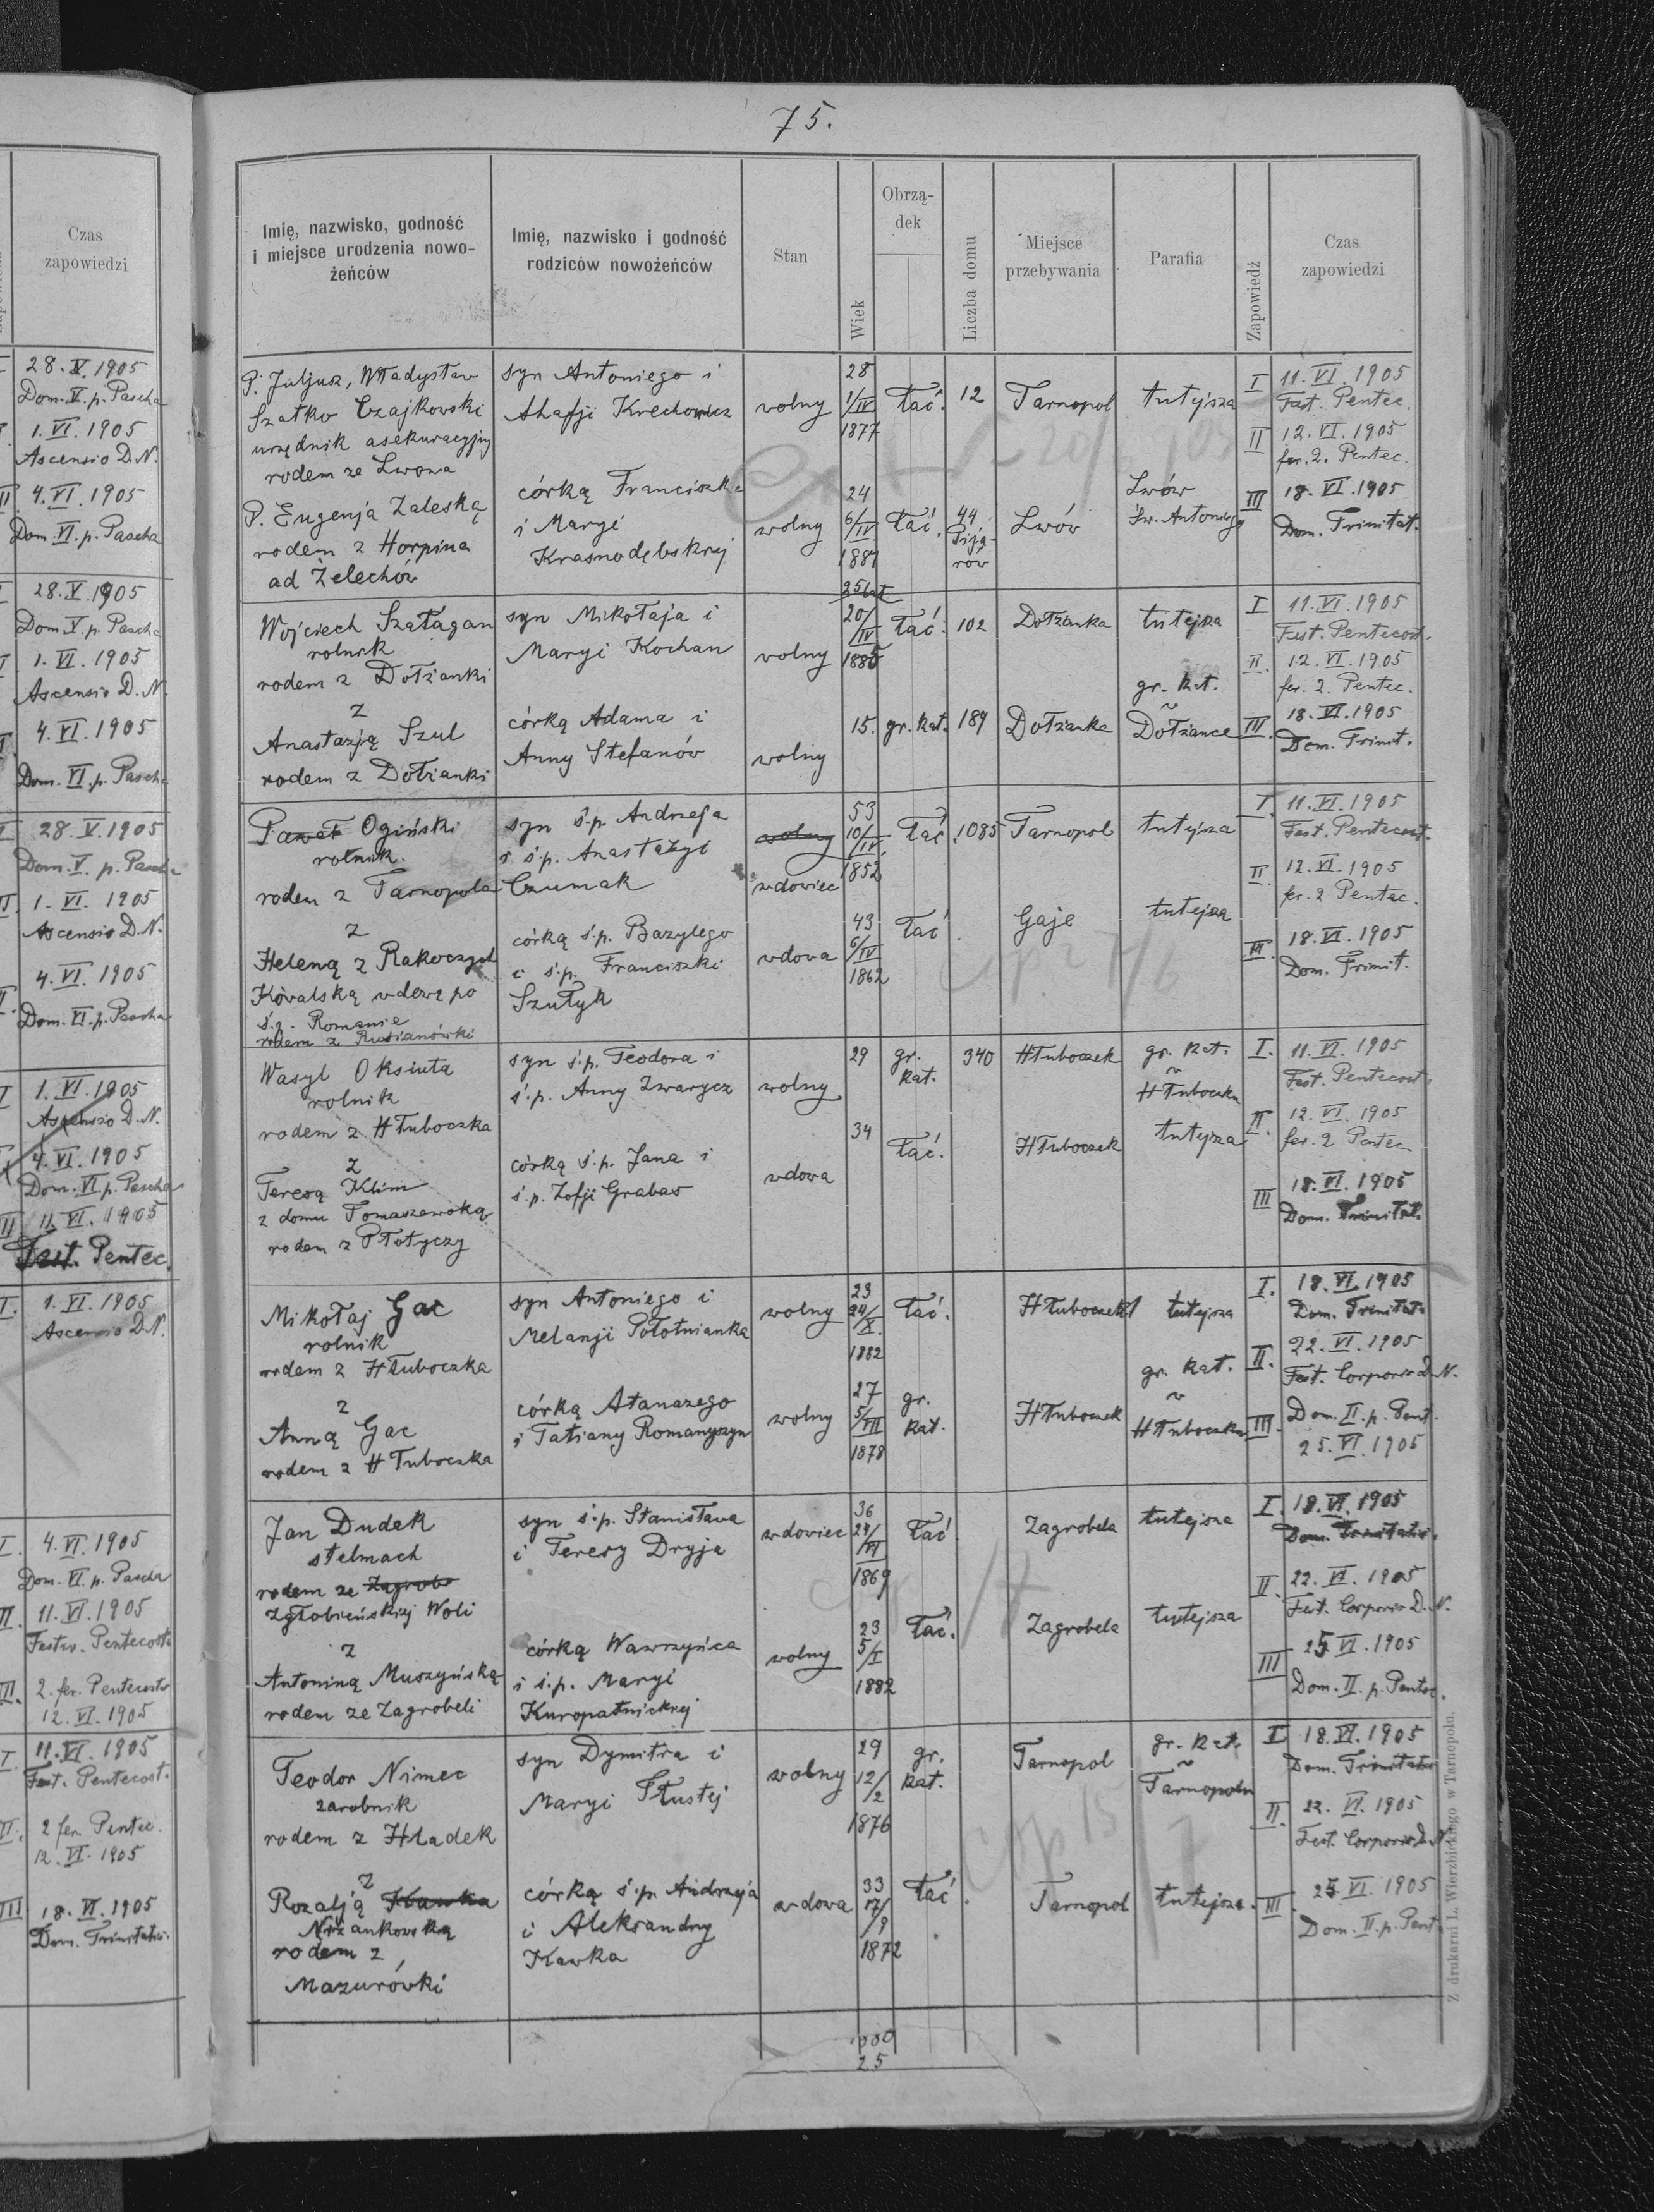 Czas
zapowiedzi
28. V. 1905
Dom. V. p. Pascha
1. VI. 1905
Ascensio D. N.
4. VI. 1905
Dom. VI. p. Pascha
28. V. 1905
Dom. V. p. Pascha
1. VI. 1905
Ascensio D. N.
4. VI. 1905
Dom. VI. p. Pascha
28. V. 1905
Dom. V. p. Pascha
1. VI. 1905
Ascensio D. N.
4. VI. 1905
Dom. VI. p. Pascha
1. VI. 1905
Ascensio D. N.
4. VI. 1905
Dom. VI. p. Pascha
III 11. VI. 1905
Fest. Pentec.
I. 1. VI. 1905
Ascensio D. N.
I. 4. VI. 1905
Dom. VI. p. Pascha
II. 11. VI. 1905
Festiv. Pentecost.
III. 2. fer. Pentecost.
12. VI. 1905
I. 11. VI. 1905
Fest. Pentecost.
II. 2 fer. Pentec.
12. VI. 1905
III 18. VI. 1905
Dom. Trinitatis.
75.
Imię, nazwisko, godność
i miejsce urodzenia nowo-
żeńców
Imię, nazwisko i godność
rodziców nowożeńców
Stan
Wiek
Obrzą-
dek
Liczba domu
Miejsce
przebywania
Parafia
Zapowiedź
Czas
zapowiedzi
P. Juljusz, Władysław
Szatko Czajkowski
urzędnik asekuracyjny
rodem ze Lwowa
syn Antoniego i
Ahafji Krechowicz
wolny
28
1/IV
1877
łać.
12
Tarnopol
tutejsza
I 11. VI. 1905
Fest. Pentec.
II 12. VI. 1905
fer. 2. Pentec.
P. Eugenja Zaleską
rodem z Horpina
ad Żelechów
córką Franciszka
i Maryi
Krasnodębskiej
wolny
24
6/IV
1881
łać.
44
Pija-
rów
Lwów
Lwów
św. Antoniego
III 18. VI. 1905
Dom. Trinitat.
Wojciech Szałagan
rolnik
rodem z Dołżanki
syn Mikołaja i
Maryi Kochan
wolny
25 lat
20/IV
1885
łać.
102
Dołżanka
tutejsza
I 11. VI. 1905
Fest. Pentecost.
II. 12. VI. 1905
fer. 2. Pentec.
z
Anastazją Szul
rodem z Dołżanki
córką Adama i
Anny Stefanów
wolny
15.
gr. kat.
189
Dołżanka
gr. kat.
w
Dołżance
III. 18. VI. 1905
Dom. Trinit.
Paweł Ogiński
rolnik.
rodem z Tarnopola
syn ś.p. Andrzeja
i ś.p. Anastazyi
Czumak
wolny
wdowiec
53
10/IV
1852
łać.
1085
Tarnopol
tutejsza
I. 11. VI. 1905
Fest. Pentecost.
II. 12. VI. 1905
fer. 2 Pentec.
z
Heleną z Rakoczych
Kowalską wdową po
ś.p. Romanie
rodem z Rusianówki
córką ś.p. Bazylego
i ś.p. Franciszki
Szułyk
wdowa
43
6/IV
1862
łać.
Gaje
tutejsza
III. 18. VI. 1905
Dom. Trinit.
Wasyl Oksiuta
rolnik
rodem z Hłuboczka
syn ś.p. Teodora i
ś.p. Anny Zwarycz
wolny
29
gr.
kat.
340
Hłuboczek
gr. kat.
w
Hłuboczku
I. 11. VI. 1905
Fest. Pentecost.
II. 12. VI. 1905
fer. 2 Pentec.
z
Teresą Klim
z domu Tomaszewską
rodem z Płotyczy
córką ś.p. Jana i
ś.p. Zofji Grabas
wdowa
34
łać.
Hłuboczek
tutejsza
III 18. VI. 1905
Dom. Trinitat.
Mikołaj Gac
rolnik
rodem z Hłuboczka
syn Antoniego i
Melanji Połotnianka
wolny
23
24/X.
1882
łać.
Hłuboczek
tutejsza
I. 18. VI. 1905
Dom. Trinitat.
II. 22. VI. 1905
Fest. Corporis D. N.
z
Anną Gac
rodem z Hłuboczka
córką Atanazego
i Tatiany Romanyszyn
wolny
27
5/VII
1878
gr.
kat.
Hłuboczek
gr. kat.
w
Hłuboczku
III. Dom. II. p. Pent.
25. VI. 1905
Jan Dudek
stelmach
rodem ze Zagrobe
Zgłobieńskiej Woli
syn ś.p. Stanisława
i Teresy Dryja
wdowiec
36
24/VI
1869
łać.
Zagrobela
tutejsza
I. 18. VI. 1905
Dom. Trinitatis.
II. 22. VI. 1905
Fest. Corporis D. N.
z
Antoniną Muszyńską
rodem ze Zagrobeli
córką Wawrzyńca
i ś.p. Maryi
Kuropatnickiej
wolny
23
5/I
1882
łać.
Zagrobela
tutejsza
III 25 VI. 1905
Dom. II. p. Pentec.
Teodor Nimec
zarobnik
rodem z Hladek
syn Dymitra i
Maryi Tłustej
wolny
29
12/2
1876
gr.
kat.
Tarnopol
gr. kat.
w
Tarnopolu
I 18. VI. 1905
Dom. Trinitatis
II. 22. VI. 1905
Fest. Corporis D. N.
z
Rozalją Kawka
rodem z
Mazurówki
córką ś.p. Andrzeja
i Aleksandry
Kawka
wdowa
33
17/9
1872
łać.
Tarnopol
tutejsza.
III. 25. VI. 1905
Dom. II. p. Pent.
Z drukarni L. Wierzbickiego w Tarnopolu.